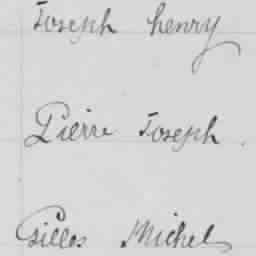 Joseph henry
Pierre Joseph.
Gilles Michel